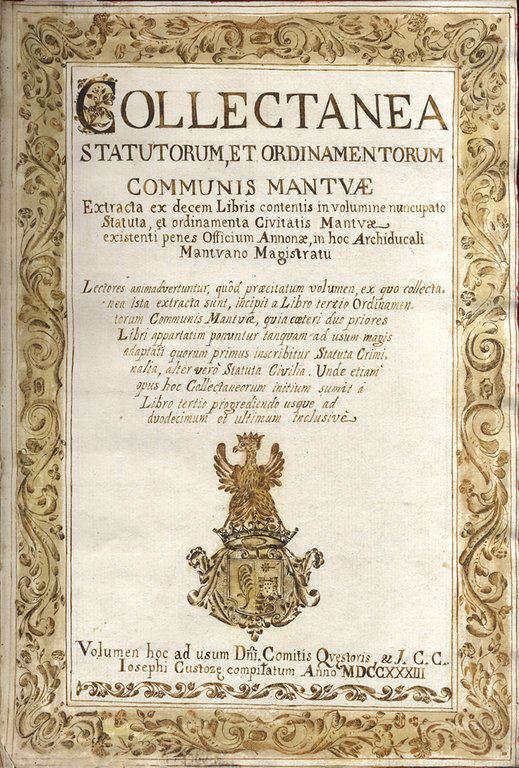 COLLECTANEA
STATUTORUM, ET ORDINAMENTORUM
COMMUNIS MANTVÆ
Extracta ex decem Libris contentis in volumine nuncupato
Statuta, et ordinamenta Civitatis Mantvæ
existenti penes Officium Annonæ, in hoc Archiducali
Mantvano Magistratu
Lectores animadvertuntur, quòd præcitatum volumen, ex quo collecta-
nea ista extracta sunt, incipit a Libro tertio Ordinamen-
torum Communis Mantuæ, quia cæteri duo priores
Libri appartatim ponuntur tanquam ad usum magis
adaptati quorum primus inscribitur Statuta Crimi-
nalia, alter verò Statuta Civilia. Unde etiam
opus hoc Collectaneorum initium sumit à
Libro tertio progrediendo usque ad
duodecimum et ultimum inclusivè
Volumen hoc ad usum Dñi Comitis Qvęstoris, & J. C. C.
Iosephi Custozę compilatum Anno MDCCXXXIII